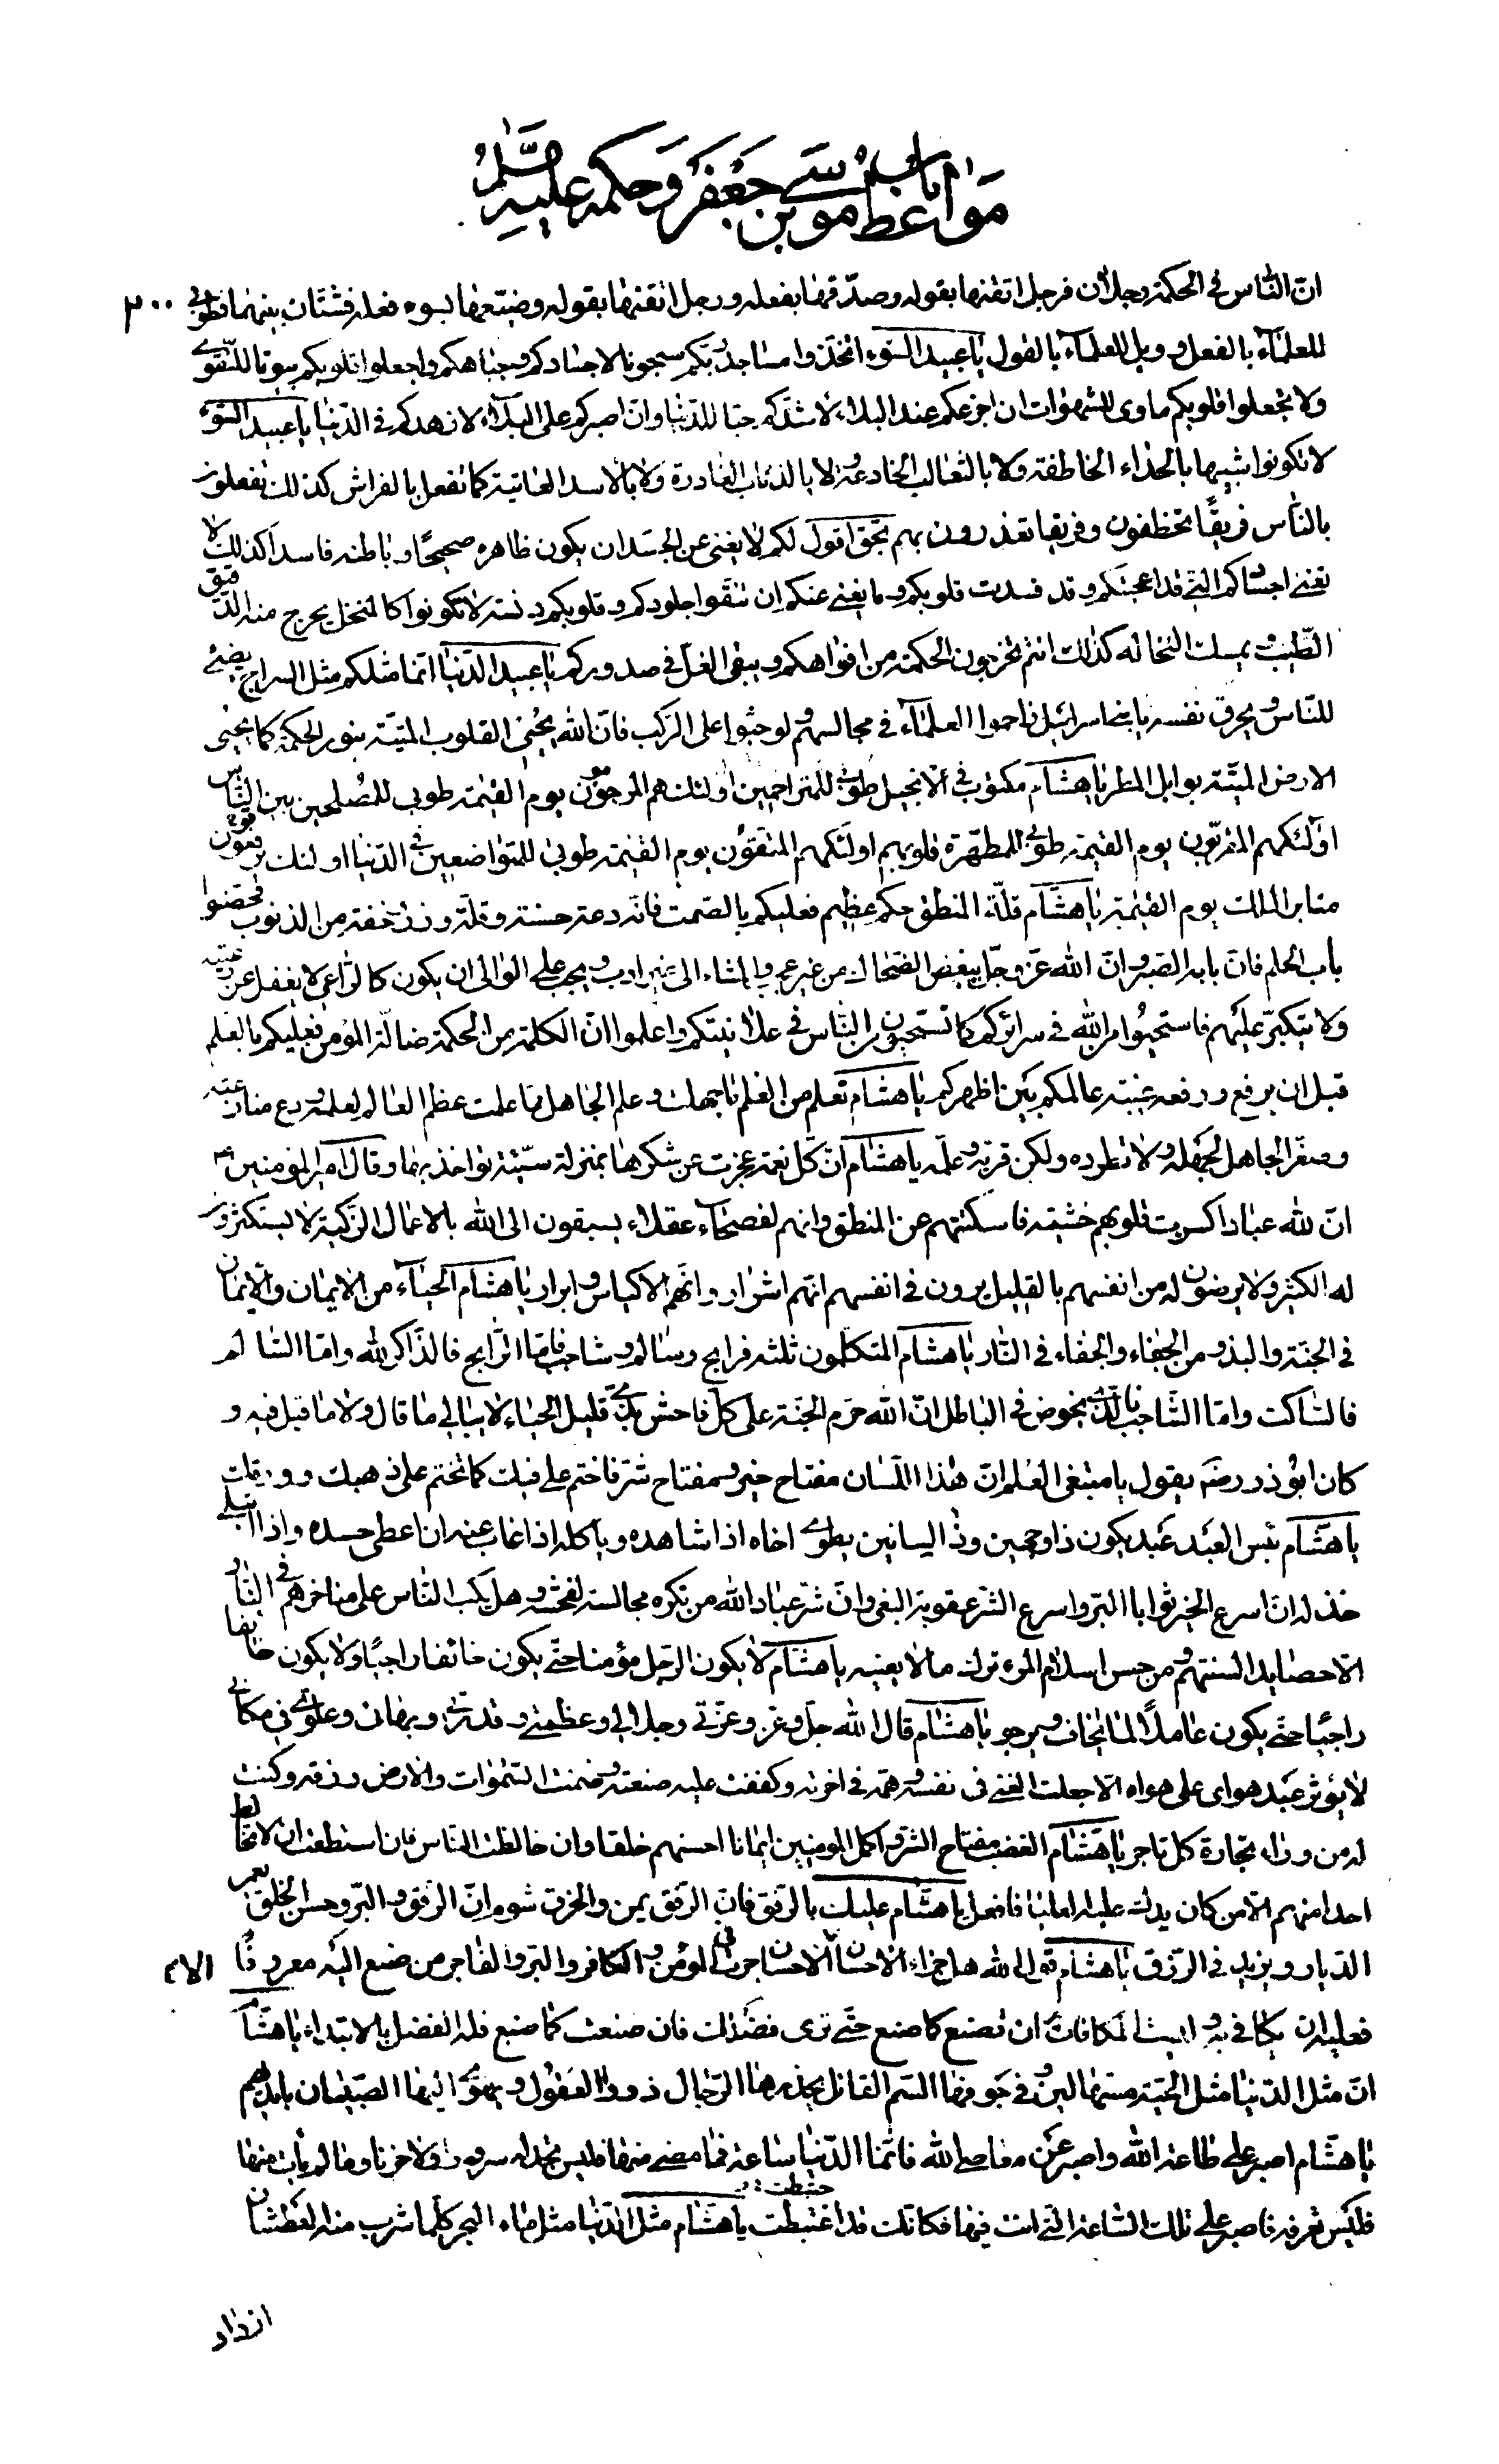 باب
مواعظ موسى بن جعفر وحكمه عليه السلم
انّ النّاس في الحكمة رجلان فرجل اتقنها بقوله وصدّقها بفعله ورجل اتقنها بقوله وضيّعها بسوء فعله فشتّان بينهما فطوبى
٣٠٠
للعلمآء بالفعل وويل للعلمآء بالقول يا عبيد السّوء اتخذوا مساجد ربّكم سجونا لاجسادكم وجباهكم واجعلوا قلوبكم بيوتا للتّقوى
ولا تجعلوا قلوبكم ماوى للشهوات ان اجزعكم عند البلاء لاشدّكم حبّا للدّنيا وانّ اصبركم على البلآء لازهدكم في الدّنيا يا عبيد السّوء
لا تكونوا شبيها بالحداء الخاطفة ولا بالثعالب الخادعة ولا بالذئاب الغادرة ولا بالاسد العاتية كما تفعل بالفراش كذلك تفعلون
بالناس فريقًا تخطفون وفريقا تغدرون بهم بحقّ اقول لكم لا يغنى عن الجسد ان يكون ظاهره صحيحًا وباطنه فاسدا كذلك لا
تغنى اجسادكم التى قد اعجبتكم وقد فسدت قلوبكم وما يغنى عنكم ان تنقّوا جلودكم وقلوبكم دنسة لا تكونوا كالمنخل يخرج منه الدّقيق
الطّيب ويمسك النخالة كذلك انتم تخرجون الحكمة من افواهكم ويبقى الغلّ في صدوركم يا عبيد الدّنيا انّما مثلكم مثل السراج يضئ
للنّاس ويحرق نفسه يا بنى اسرائيل زاحموا العلمآء في مجالسهم ولو جثوا على الركب فانّ الله يحيى القلوب الميّتة بنور الحكمة كما يحيى
الارض الميّتة بوابل المطر يا هشام مكتوب في الانجيل طوبى للمتراحمين اولئك هم المرحومون يوم القيمة طوبى للمصلحين بين الناس
اولئك هم المقرّبون يوم القيمة طوبى للمطهّرة قلوبهم اولئك هم المتّقون يوم القيمة طوبى للمتواضعين في الدّنيا اولئك يرتقون
منابر الملك يوم القيمة يا هشام قلّة المنطق حكم عظيم فعليكم بالصمت فانّه دعة حسنة وقلّة وزر وخفّة من الذنوب فحصّنوا
باب الحلم فانّ بابه الصبر وانّ الله عزّ وجلّ يبغض الضحّاك من غير عجب والمشّاء الى غير ادب ويجب على الوالى ان يكون كالرّاعى لا يغفل عن رعيته
ولا يتكبّر عليهم فاستحيوا من الله في سرائركم كما تستحيون من الناس في علانيتكم واعلموا انّ الكلمة من الحكمة ضالّة المؤمن فعليكم بالعلم
قبل ان يرفع ورفعه غيبة عالمكم بين اظهركم يا هشام تعلّم من العلم ما جهلت وعلّم الجاهل ممّا علمت عظّم العالم لعلمه ودع منازعته
وصغّر الجاهل لجهله ولا تطرده ولكن قرّبه وعلّمه يا هشام انّ كلّ نعمة عجزت عن شكرها بمنزلة سيّئة تواخذ بها وقال امير المؤمنين ص
انّ لله عبادا كسرت قلوبهم خشيته فاسكتتهم عن المنطق وانهم لفصحاء عقلاء يستبقون الى الله بالاعمال الزكيّة لا يستكثرون
له الكثير ولا يرضون له من انفسهم بالقليل يرون في انفسهم انّهم اشرار وانّهم لاكياس وابرار يا هشام الحياء من الايمان والايمان
في الجنة والبذاء من الجفاء والجفاء في النّار يا هشام المتكلّمون ثلثة فرابح وسالم وشاجب فامّا الرّابح فالذّاكر لله وامّا السّالم
فالسّاكت وامّا الشّاجب فالذى يخوض في الباطل انّ الله حرّم الجنّة على كلّ فاحش بذىّ قليل الحياء لا يبالى ما قال ولا ما قيل فيه و
كان ابوذر رضى يقول يا مبتغى العلم انّ هذا اللّسان مفتاح خير ومفتاح شرّ فاختم على فيك كما تختم على ذهبك وورقك
يا هشام بئس العبد عبد يكون ذا وجهين وذا لسانين يطرى اخاه اذا شاهده وياكله اذا غاب عنه ان اعطى حسده واذا ابتلى
خذله انّ اسرع الخير ثوابا البرّ واسرع الشّر عقوبة البغى وانّ شرّ عباد الله من تكره مجالسته لفحشه وهل يكبّ النّاس على مناخرهم في النّار
الّا حصايد السنتهم ومن حسن اسلام المرء ترك ما لا يعنيه يا هشام لا يكون الرّجل مؤمنا حتّى يكون خائفا راجيًا ولا يكون خائفا
راجيًا حتّى يكون عاملاً لما يخاف ويرجو يا هشام قال الله جلّ وعزّ وعزّتى وجلالى وعظمتى وقدرتى وبهائى وعلوّى في مكانى
لا يؤثر عبد هواى على هواه الّا جعلت الغنى فى نفسه وهمّه في اخرته وكففت عليه ضيعته وضمنت السّموات والارض رزقه وكنت
له من وراء تجارة كلّ تاجر يا هشام الغضب مفتاح الشّر واكمل المومنين ايمانا احسنهم خلقا وان خالطت النّاس فان استطعت ان لا تخالط
احدا منهم الّا من كان يدك عليه العليا فافعل يا هشام عليك بالرّفق فانّ الرّفق يمن والخرق شوم انّ الرّفق والبرّ وحسن الخلق يعمر
الدّيار ويزيد في الرّزق يا هشام قول الله هل جزاء الاحسان الّا الاحسان جرت في المؤمن والكافر والبرّ والفاجر من صنع اليه معروف
الاية
فعليه ان يكافى به وليست المكافات ان تصنع كما صنع حتّى ترى فضلك فان صنعت كما صنع فله الفضل بالابتداء يا هشام
انّ مثل الدّنيا مثل الحيّة مسّها ليّن وفي جوفها السّم القاتل يحذرها الرّجال ذووا العقول ويهوى اليها الصّبيان بايديهم
يا هشام اصبر على طاعة الله واصبر عن معاصى الله فانّما الدّنيا ساعة فما مضى منها فليس تجد له سرورا ولا حزنا وما لم يات منها
فليس تعرفه فاصبر على تلك السّاعة التى انت فيها فكانّك قد اغتبطت يا هشام مثل الدّنيا مثل ماء البحر كلّما شرب منه العطشان
ازداد